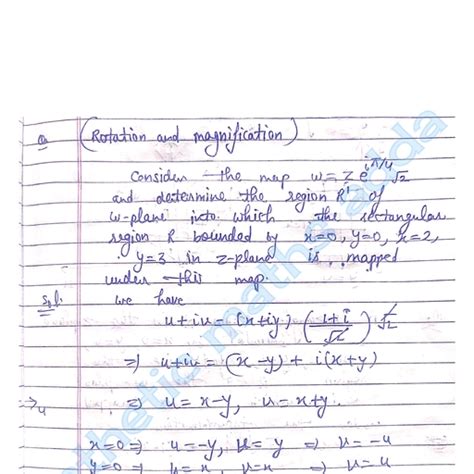 Q (Rotation and magnification)
Consider the map w = z e^{iπ/4} √2
and determine the region R' of
w-plane into which the rectangular
region R bounded by x=0, y=0, x=2,
y=3 in z-plane is mapped
under this map.
Sol. We have
u+iv = (x+iy) (1+i/√2) √2
⇒ u+iv = (x-y) + i(x+y)
⇒ u = x-y, v = x+y.
x=0 ⇒ u=-y, v=y ⇒ v=-u
y=0 ⇒ u=x, v=x ⇒ v=u
thetic maths adda